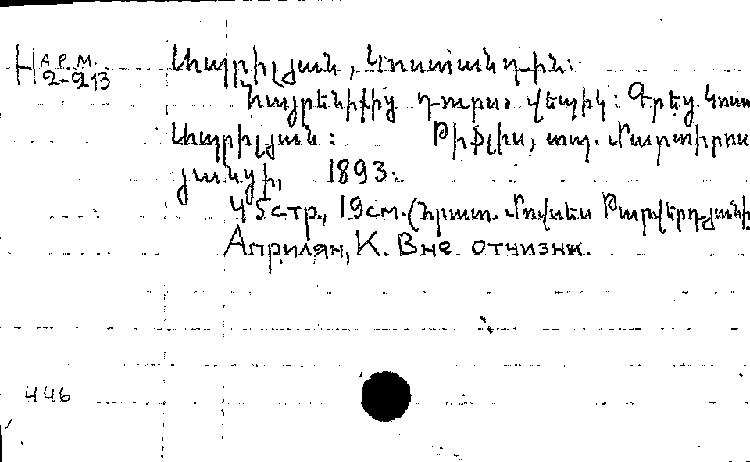 Н АРМ.
2-213
Ապրիլյան, Կոստանդին:
Հայրենիքից դուրս. վեպիկ: Գրեց Կոստ
Ապրիլյան: Թիֆլիս, տպ. Մարտիրոս
յանցի, 1893.
45стр., 19см. (Հրատ. Մովսես Վարդերդյանի
Априлян, К. Вне отчизны.
446